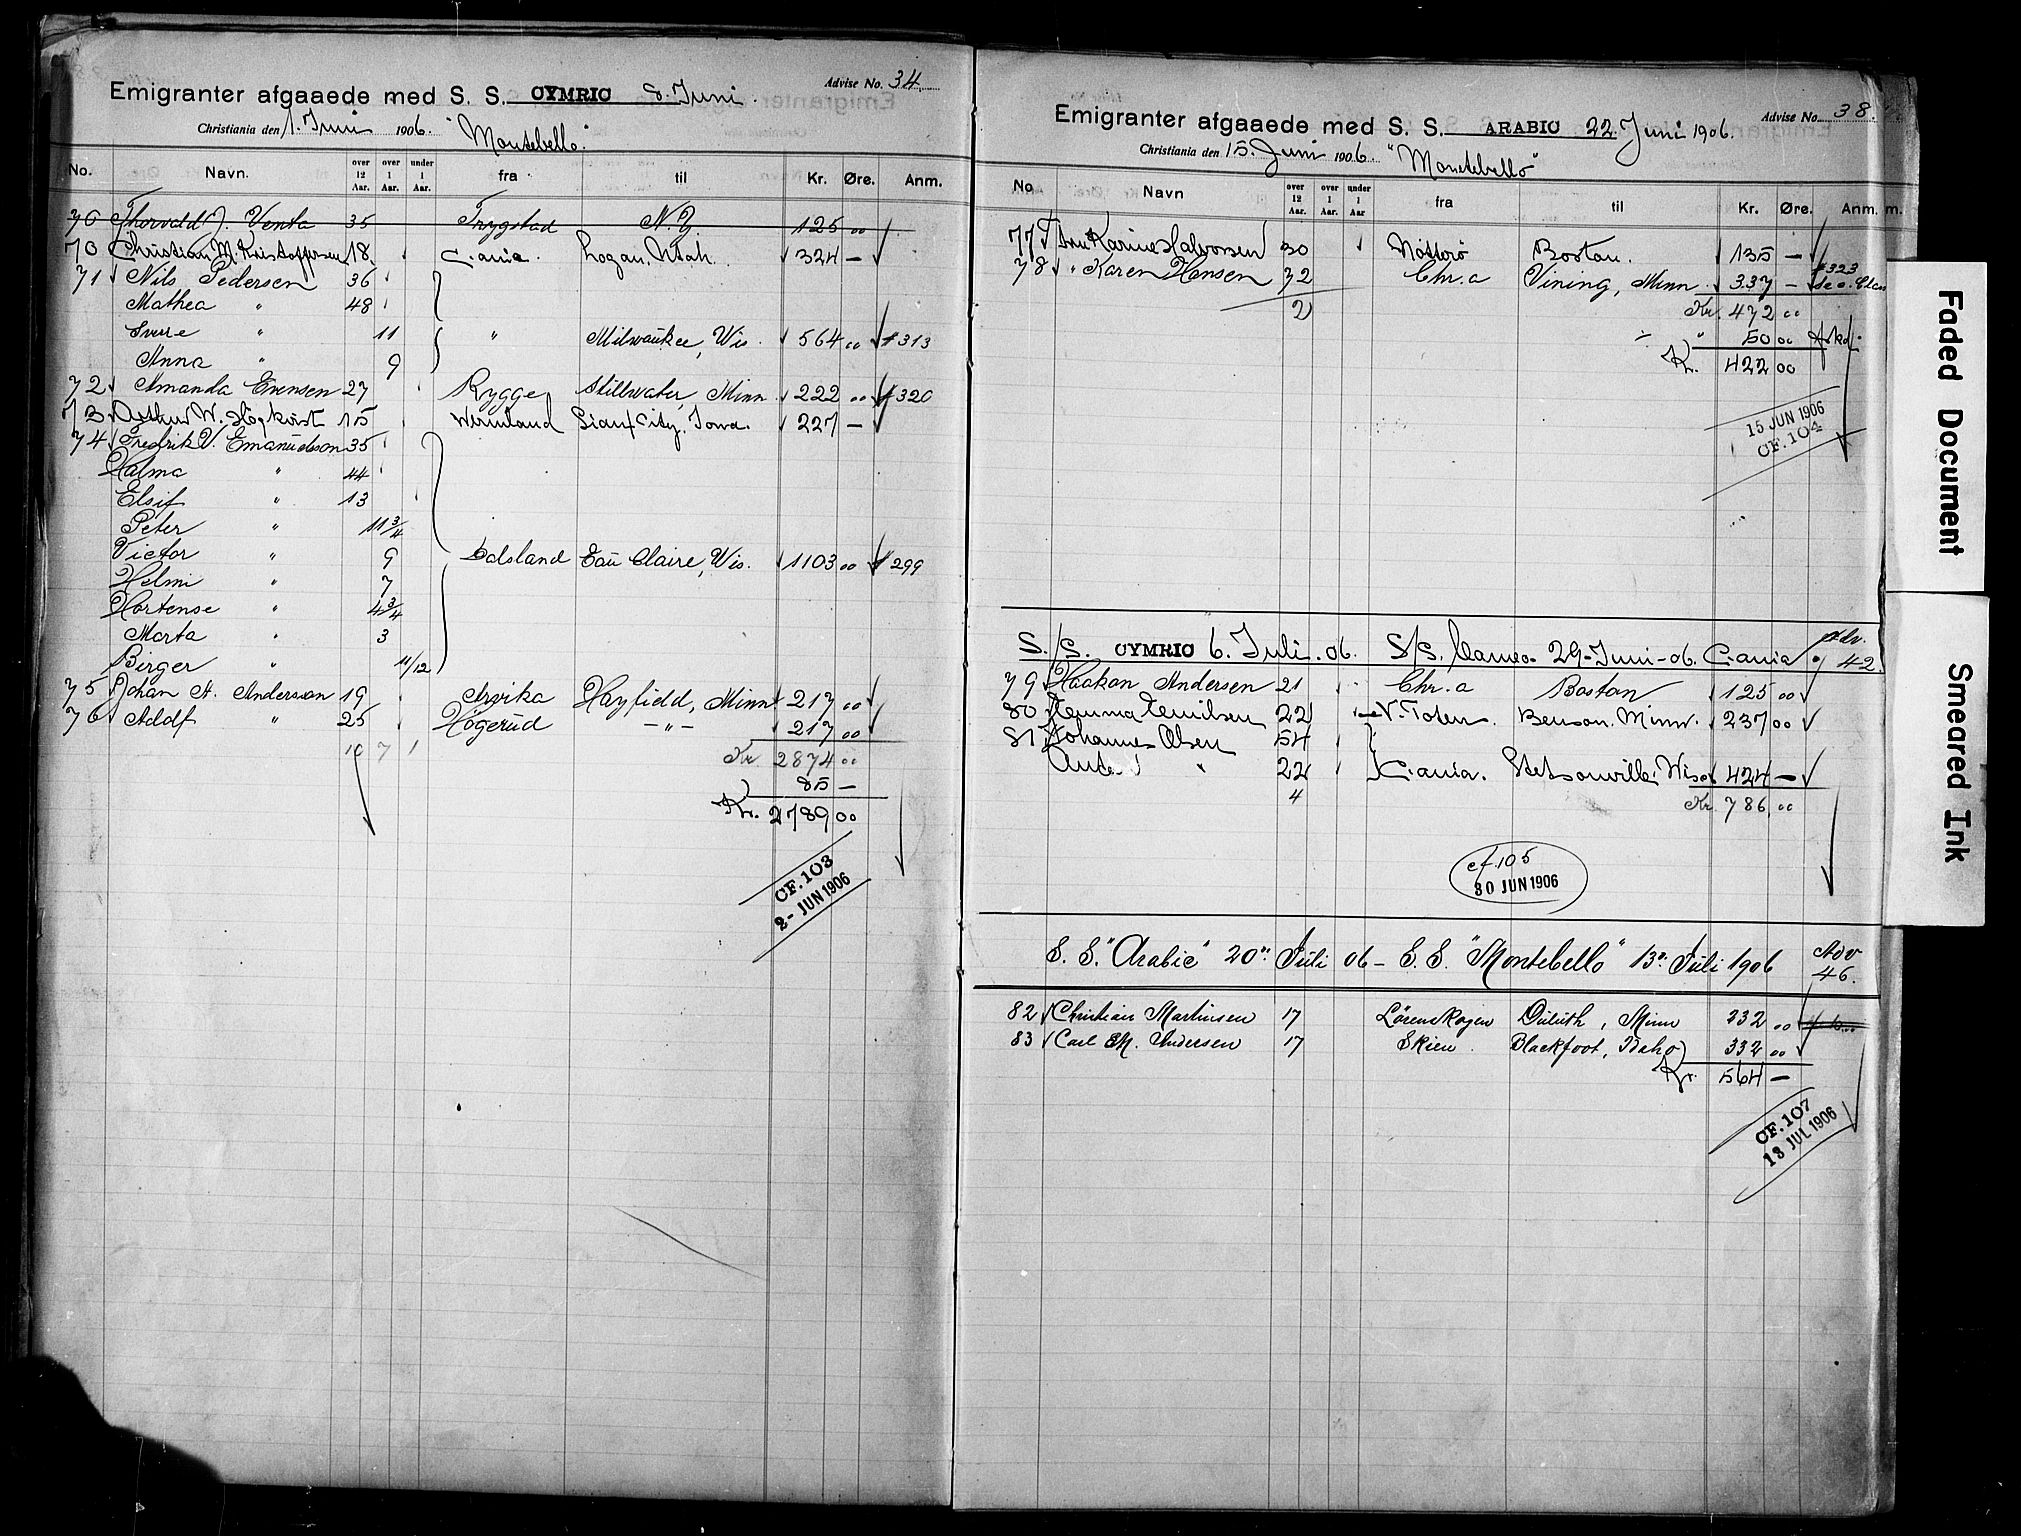 Advise No. 34
Emigranter afgaaede med S. S. CYMRIC 8. Juni.
Christiania den 1. Juni 1906. "Montebello"
No. Navn. over 12 Aar. over 1 Aar. under 1 Aar. fra til Kr. Øre. Anm.
70 Thorvald J. Venta 35 Trygstad N.Y. 125 00
70 Christian M. Kristoffersen 18 C.ania Logan, Utah 324 —
71 Nils Pedersen 36
Mathea " 48
Sverre " 11 " Milwaukee, Wis. 564 00 # 313
Anna " 9
72 Amanda Evensen 27 Rygge Stillwater, Minn 222 00 # 320
73 Arthur W. Högkvist 15 Wermland Sioux City, Iowa. 227 —
74 Fredrik V. Emanuelsson 35
Halma " 44
Elsif " 13
Peter " 11 3/4
Victor " 9 Dalsland Eau Claire, Wis. 1103 00 # 299
Helmi " 7
Hortense " 4 3/4
Marta " 3
Birger " 11/12
75 Johan A. Andersson 19 Arvika Hayfield, Minn 217 00
76 Adolf " 25 Högerud — " — 217 00
10 7 1 Kr 2874 00
85 —
Kr. 2789 00
CF. 103
2- JUN 1906
Advise No. 38.
Emigranter afgaaede med S. S. ARABIC 22 Juni 1906.
Christiania den 15. Juni 1906 "Montebello"
No Navn over 12 Aar. over 1 Aar. under 1 Aar fra til Kr. Øre. Anm.
77 Fru Karine Halvorsen 30 Nötterö Boston. 135 —
78 " Karen Hansen 72 Chr.a Vining, Minn 337 — # 323
2 Kr. 472 00
÷ " 50 00
Kr. 422 00
15 JUN 1906
CF. 104
S./S. CYMRIC 6. Juli. 06. S/S. Cameo 29-Juni-06. C.ania Adv. 42.
79 Haakon Andersen 21 Chr.a Boston 125 00
80 Hemma Emilsen 22 V. Toten. Benson. Minn. 237 00
81 Johannes Olsen 54
22 C.ania. Stetsonville. Wisc 424 —
4 Kr. 786,00
cf. 105
30 JUN 1906
S. S. "Arabic" 20" Juli 06 – S. S. "Montebello" 13" Juli 1906 Adv 46.
82 Christian Martinsen 17 Lørenskogen Duluth, Minn 232 00
83 Carl M. Andersen 17 Skien Blackfoot, Idaho 332 00
Kr. 564 —
CF. 107
13 JUL 1906
Faded Document
Smeared Ink